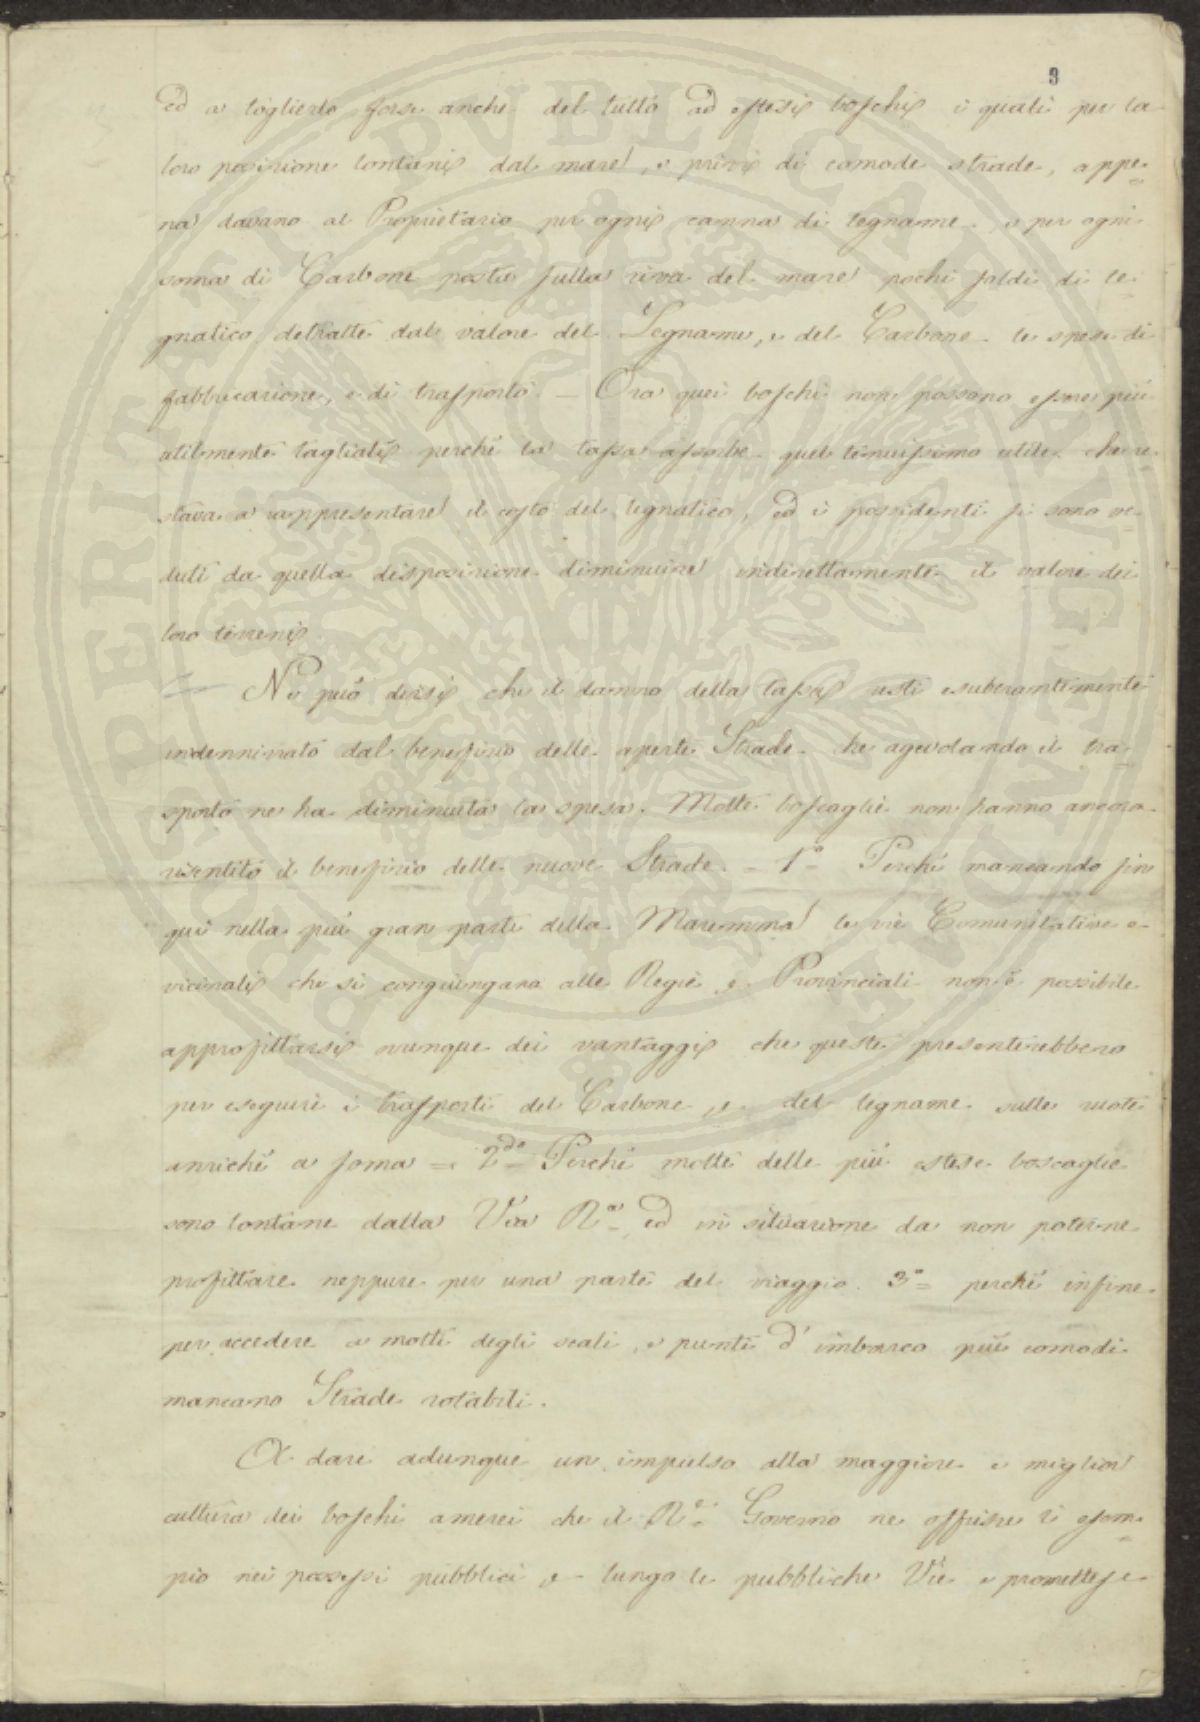 3
ed a toglierlo forse anche del tutto ad estesi boschi i quali per la
loro posizione lontani dal mare, e privi di comode strade, appe=
na davano al Proprietario per ogni canna di legname e per ogni
soma di Carbone posta sulla riva del mare pochi soldi di le=
gnatico detratte dal valore del Legname, e del Carbone le spese di
fabbricazione, e di trasporto. — Ora quei boschi non possono essere più
utilmente tagliati perché la tassa assorbe quel tenuissimo utile che re=
stava a rappresentare il costo del legnatico, ed i possidenti si sono ve=
duti da quella disposizione diminuire indirettamente il valore dei
loro terreni
Nè può dirsi che il danno della tassa resti esuberantemente
indennizzato dal benefizio delle aperte Strade che agevolando il tra=
sporto ne ha diminuita la spesa. Molte boscaglie non hanno ancora
risentito il benefizio delle nuove Strade = 1° Perché mancando fin
qui nella più gran parte della Maremma le vie Comunitative e
vicinali che si congiungano alle Regie, e Provinciali non è possibile
approfittarsi ovunque dei vantaggi che queste presenterebbero
per eseguire i trasporti del Carbone, e del legname sulle ruote
anziché a soma = 2do Perché molte delle più estese boscaglie
sono lontane dalla Via Ra ed in situazione da non poterne
profittare neppure per una parte del viaggio. 3° = perché infine
per accedere a molti degli scali, e punti d'imbarco più comodi
mancano Strade rotabili.
A dare adunque un impulso alla maggiore e miglior
cultura dei boschi amerei che il R° Governo ne offrisse l'esem=
pio nei possessi pubblici e lungo le pubbliche Vie e promettesse
PROSPERITATI PVBLICAE AVGENDAE